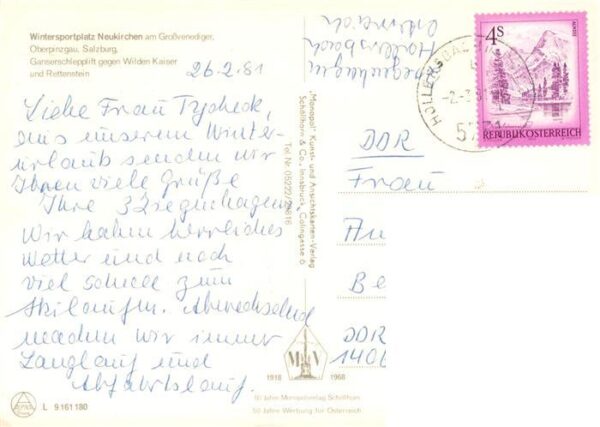 Wintersportplatz Neukirchen am Großvenediger,
Oberpinzgau, Salzburg,
Ganserschlepplift gegen Wilden Kaiser
und Rettenstein
26.2.81
Liebe Frau
aus unserem Winter-
urlaub senden wir
Ihnen viele Grüße
Ihre
Wir haben herrliches
Wetter und noch
viel Schnee zum
Skilaufen. Abwechselnd
machen wir immer
Langlauf und
Abfahrtslauf.
L 9161180
„Monopol" Kunst- und Ansichtskarten-Verlag
Schöllhorn & Co., Innsbruck, Colingasse 6
Tel Nr 05222/
1918 1968
50 Jahre Monopolverlag Schöllhorn
50 Jahre Werbung für Österreich
Hollersbach
Österreich
4S
REPUBLIK ÖSTERREICH
DDR
Frau
An
Be
DDR
140